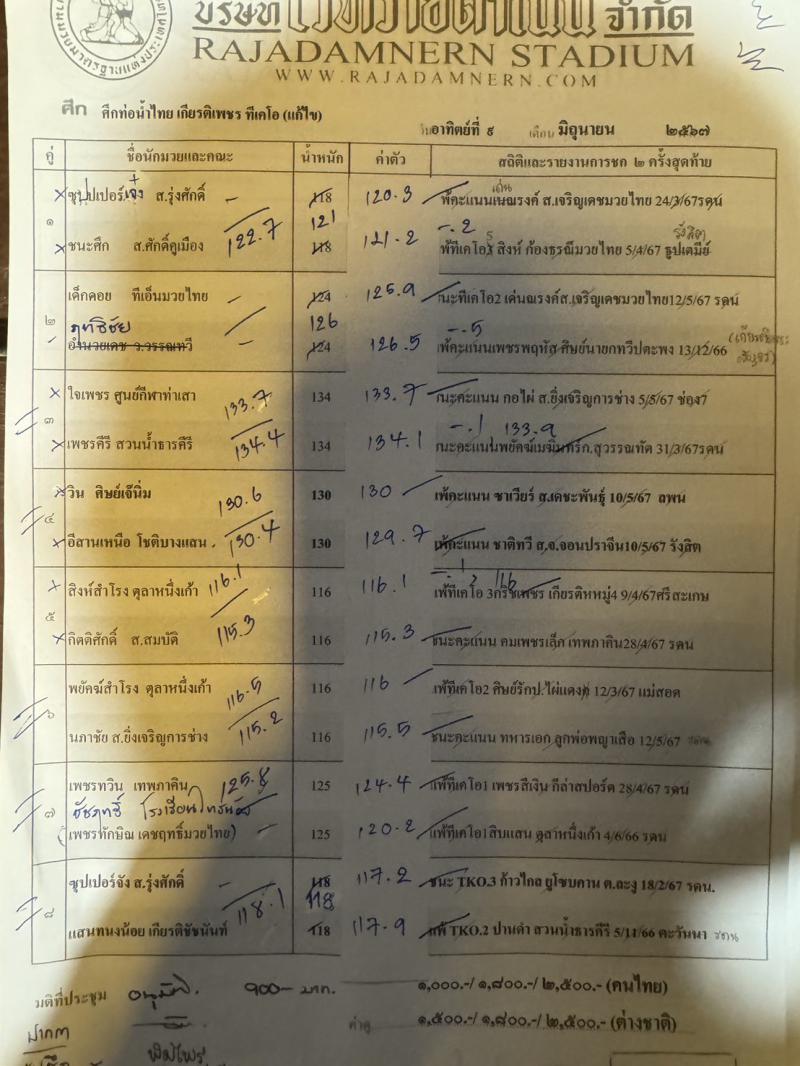 บริษัท เวทีราชดำเนิน จำกัด
RAJADAMNERN STADIUM
WWW.RAJADAMNERN.COM
ศึก ศึกท่อน้ำไทย เกียรติเพชร ทีเคโอ (แก้ไข)
วันอาทิตย์ที่ ๙ เดือน มิถุนายน ๒๕๖๗
คู่ ชื่อนักมวยและคณะ น้ำหนัก ค่าตัว สถิติและรายงานการชก ๒ ครั้งสุดท้าย
ซุปเปอร์เจ๋ง ส.รุ่งศักดิ์ 118 120.3 แพ้คะแนนเด่นณรงค์ ส.เจริญเดชมวยไทย 24/3/67รดน
๑ 121
ชนะศึก ส.ศักดิ์คูเมือง 122.7 118 121.2 แพ้ทีเคโอ3 สิงห์ ก้องธรณีมวยไทย 5/4/67 ธูปเตมีย์ รังสิต
เด็กดอย ทีเอ็นมวยไทย 124 125.9 ชนะทีเคโอ2 เด่นณรงค์ส.เจริญเดชมวยไทย12/5/67 รดน
๒ ฤทธิชัย 126
อำนวยเดช ว.วรรณทวี 124 126.5 แพ้คะแนนเพชรพฤหัส ศิษย์นายกทวีปตะพง 13/12/66
ใจเพชร ศูนย์กีฬาท่าเสา 133.7 134 133.7 ชนะคะแนน กอไผ่ ส.ยิ่งเจริญการช่าง 5/5/67 ช่อง7
๓ 133.9
เพชรคีรี สวนน้ำธารคีรี 134.4 134 134.1 ชนะคะแนนพยัคฆ์เมฆินทร์ก.สุวรรณทัต 31/3/67รดน
วิน ศิษย์เจ๊นิ่ม 130.6 130 130 แพ้คะแนน ซาเวียร์ ส.เดชะพันธุ์ 10/5/67 ลพน
๔
อีสานเหนือ โชติบางแสน 130.4 130 129.7 แพ้คะแนน ชาติทวี ส.จ.จอนปราจีน10/5/67 รังสิต
สิงห์สำโรง ตุลาหนึ่งเก้า 116.1 116 116.1 แพ้ทีเคโอ 3กริชเพชร เกียรติหหมู่4 9/4/67ศรีสะเกษ
๕ 116
กิตติศักดิ์ ส.สมบัติ 115.3 116 115.3 ชนะคะแนน คมเพชรเล็ก เทพภาคิน28/4/67 รดน
พยัคฆ์สำโรง ตุลาหนึ่งเก้า 116.5 116 116 แพ้ทีเคโอ2 ศิษย์รักป.ไผ่แดง 12/3/67 แม่สอด
๖
นภาชัย ส.ยิ่งเจริญการช่าง 115.2 116 115.5 ชนะคะแนน ทหารเอก ลูกพ่อพญาเสือ 12/5/67
เพชรทวิน เทพภาคิน 125.8 125 124.4 แพ้ทีเคโอ1 เพชรสีเงิน กีล่าสปอร์ต 28/4/67 รดน
๗ ชัชฤทธิ์
(เพชรทักษิณ เดชฤทธิ์มวยไทย) 125 120.2 แพ้ทีเคโอ1สิบแสน ตุลาหนึ่งเก้า 4/6/66 รดน
ซุปเปอร์จัง ส.รุ่งศักดิ์ 118 117.2 ชนะ TKO.3 ก้าวไกล ยูโซบกาน ต.ละงู 18/2/67 รดน.
๘ 118.1 118
แสนทนงน้อย เกียรติชัชนันท์ 118 117.9 แพ้ TKO.2 ปานดำ สวนน้ำธารคีรี 5/11/66 ตะวันนา
มติที่ประชุม อนุมัติ. ๙๐๐- บาท. ๑,๐๐๐.-/ ๑,๘๐๐.-/ ๒,๕๐๐.- (คนไทย)
ค่าดู ๑,๕๐๐.-/ ๑,๘๐๐.-/ ๒,๕๐๐.- (ต่างชาติ)